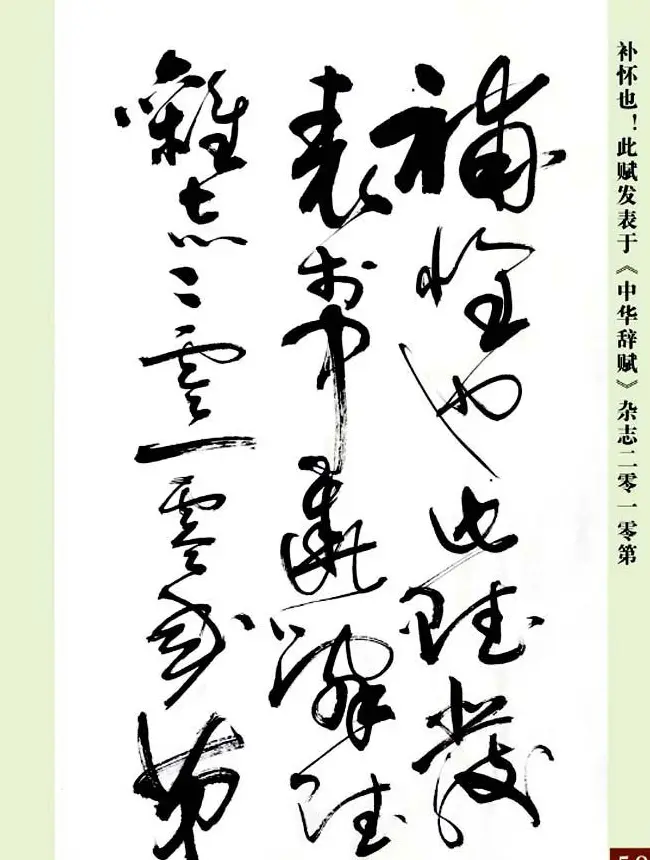 补怀也！此赋发表于《中华辞赋》杂志二零一零第
補懷也此賦發
表於中華辭賦
雜志二零一零年第